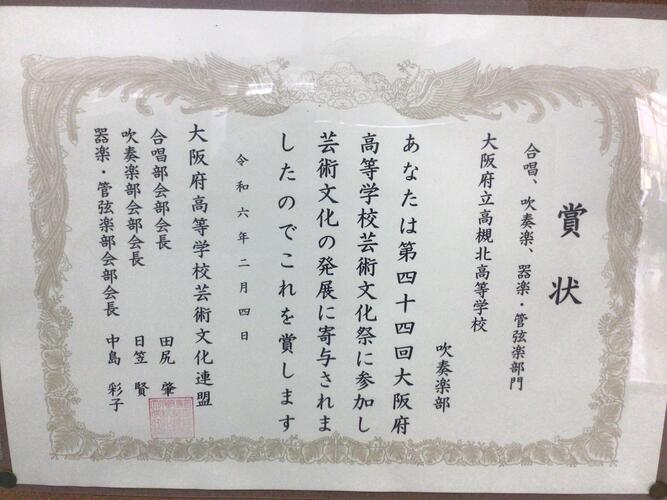 賞状
合唱、吹奏楽、器楽・管弦楽部門
大阪府立高槻北高等学校
吹奏楽部
あなたは第四十四回大阪府
高等学校芸術文化祭に参加し
芸術文化の発展に寄与されま
したのでこれを賞します
令和六年二月四日
大阪府高等学校芸術文化連盟
合唱部会部会長 田尻 肇
吹奏楽部会部会長 日笠 賢
器楽・管弦楽部会部会長 中島 彩子